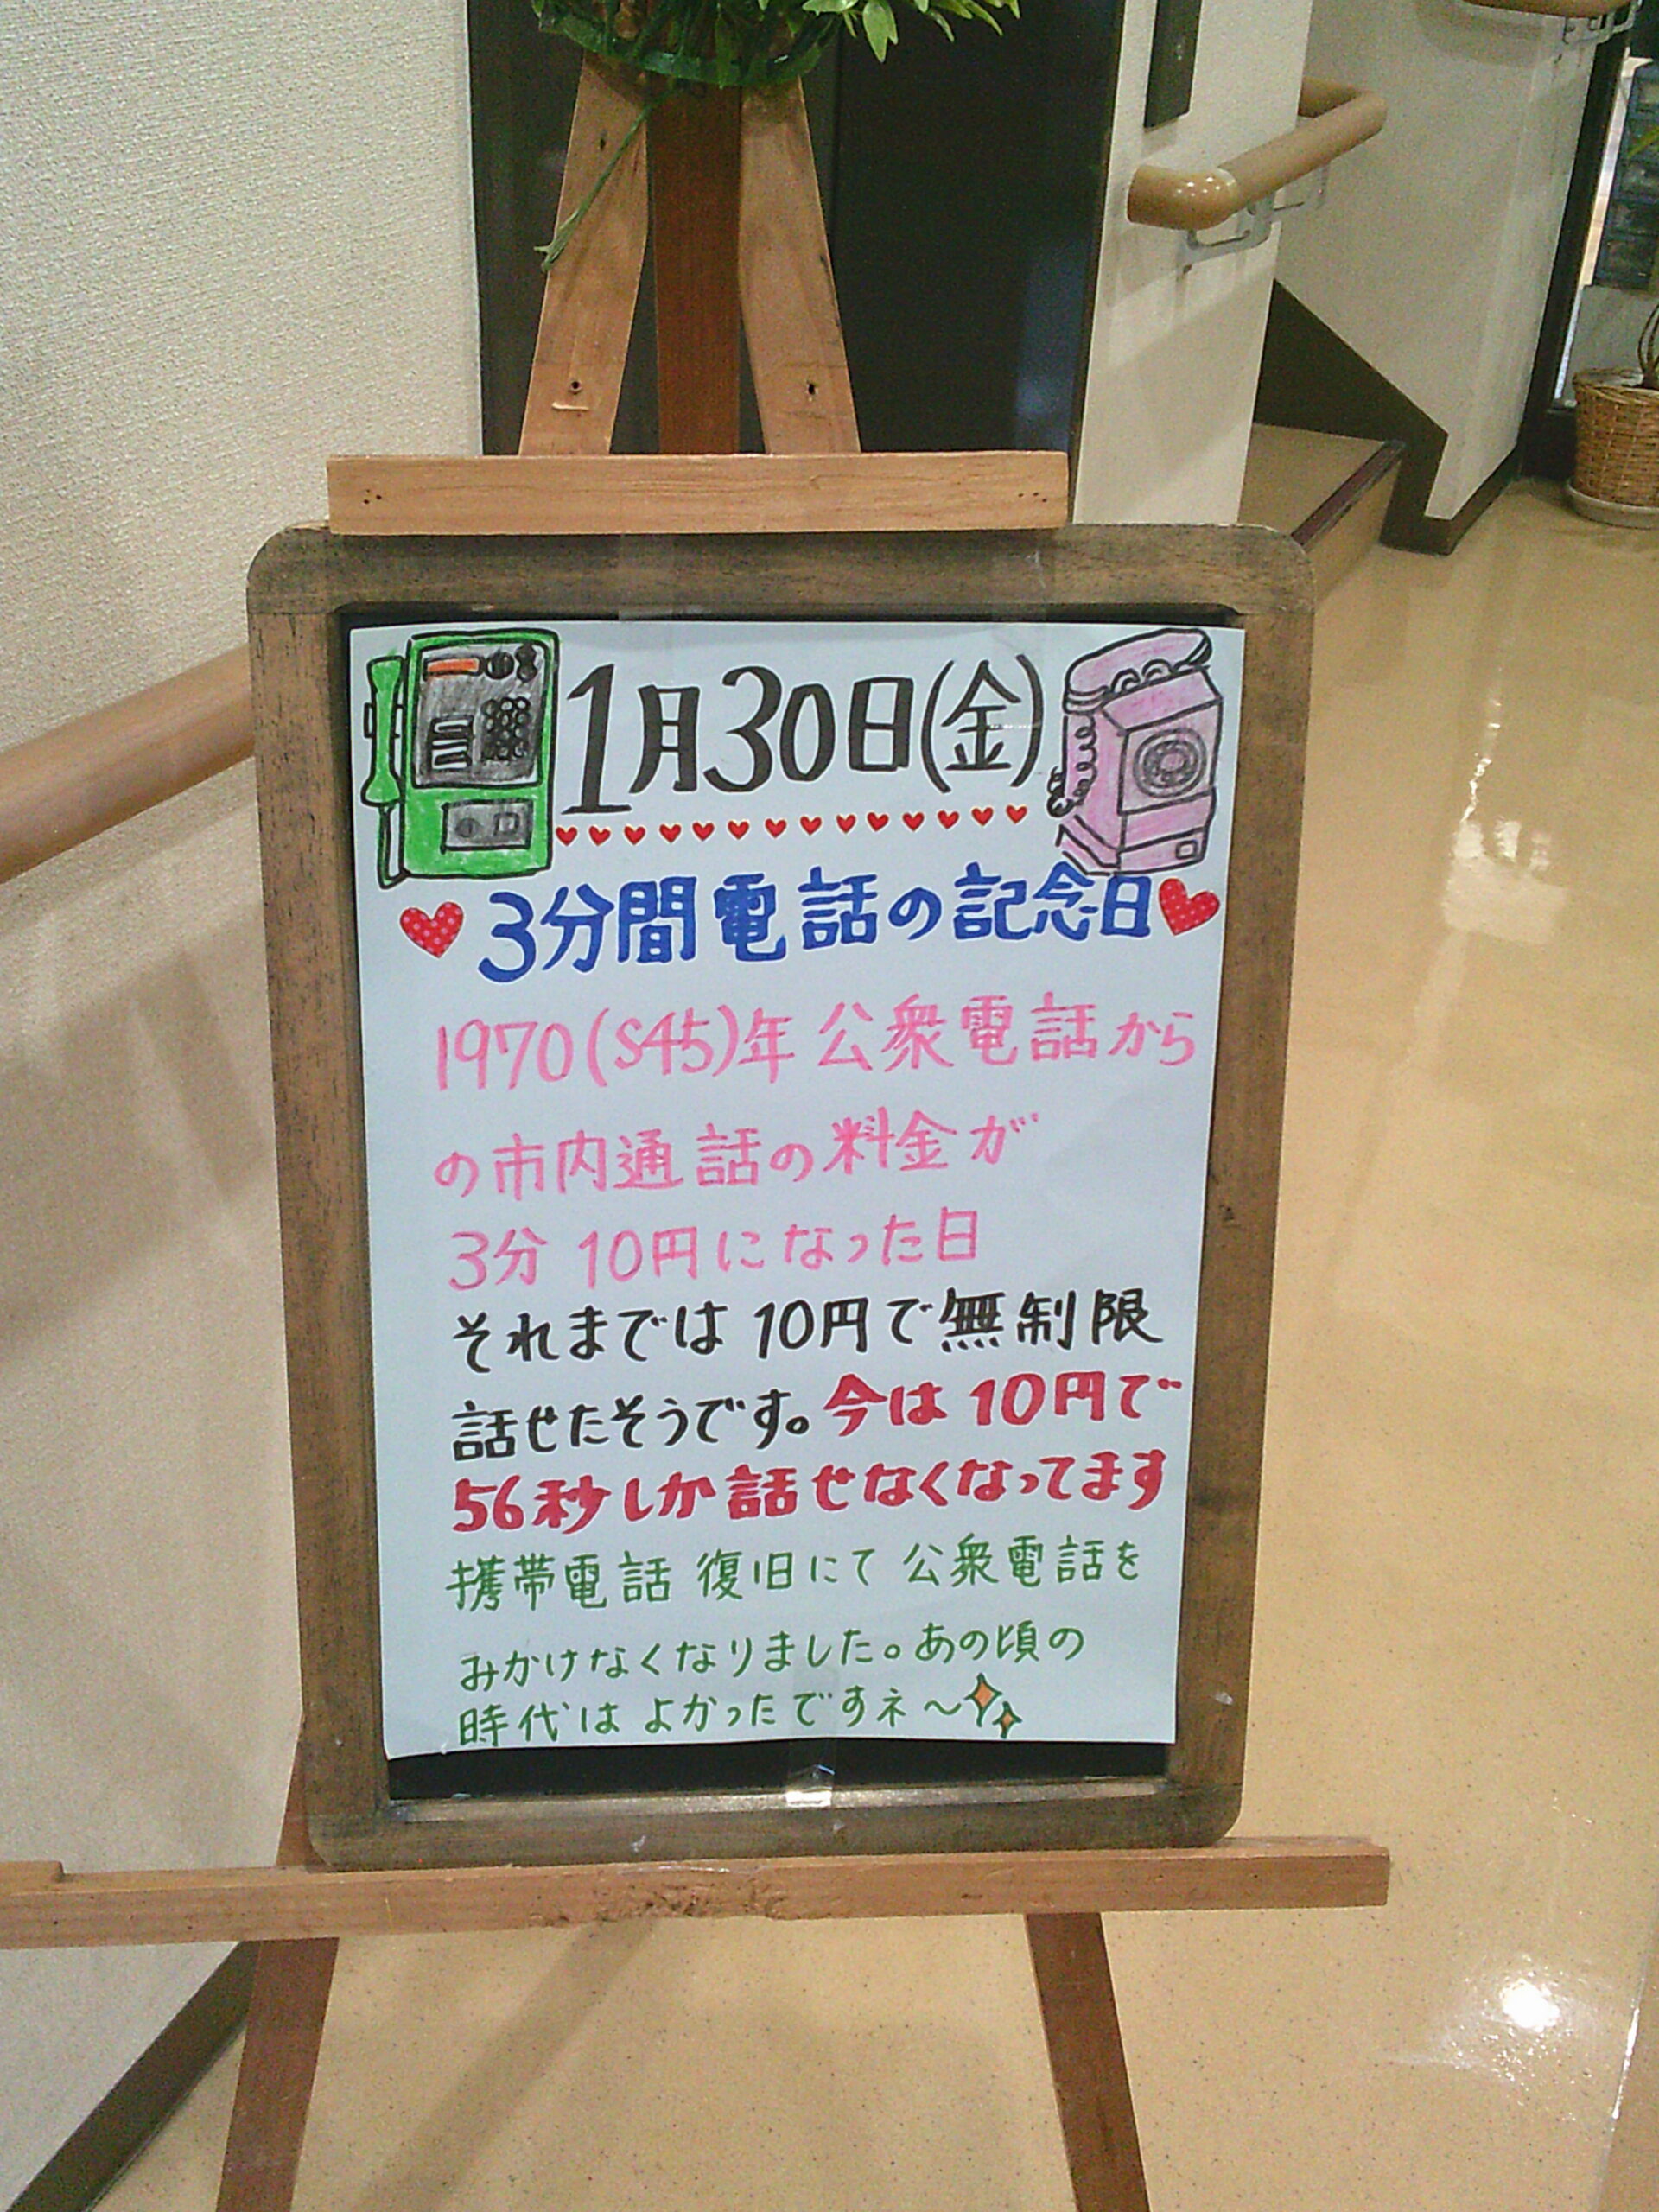 1月30日(金)
3分間電話の記念日
1970(S45)年 公衆電話から
の市内通話の料金が
3分 10円になった日
それまでは 10円で無制限
話せたそうです。今は 10円で
56秒しか話せなくなってます
携帯電話 復旧にて 公衆電話を
みかけなくなりました。あの頃の
時代は よかったですネ～